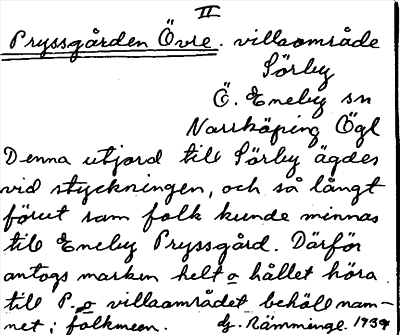 II
Pryssgården Övre. villaområde
Sörby
Ö. Eneby sn
Norrköping Ögl
Denna utjord till Sörby ägdes
vid styckningen, och så långt
förut som folk kunde minnas
till Eneby Pryssgård. Därför
antogs marken helt o hållet höra
till P. o villaområdet behöll nam-
net i folkmun. G. Rämminge. 1939